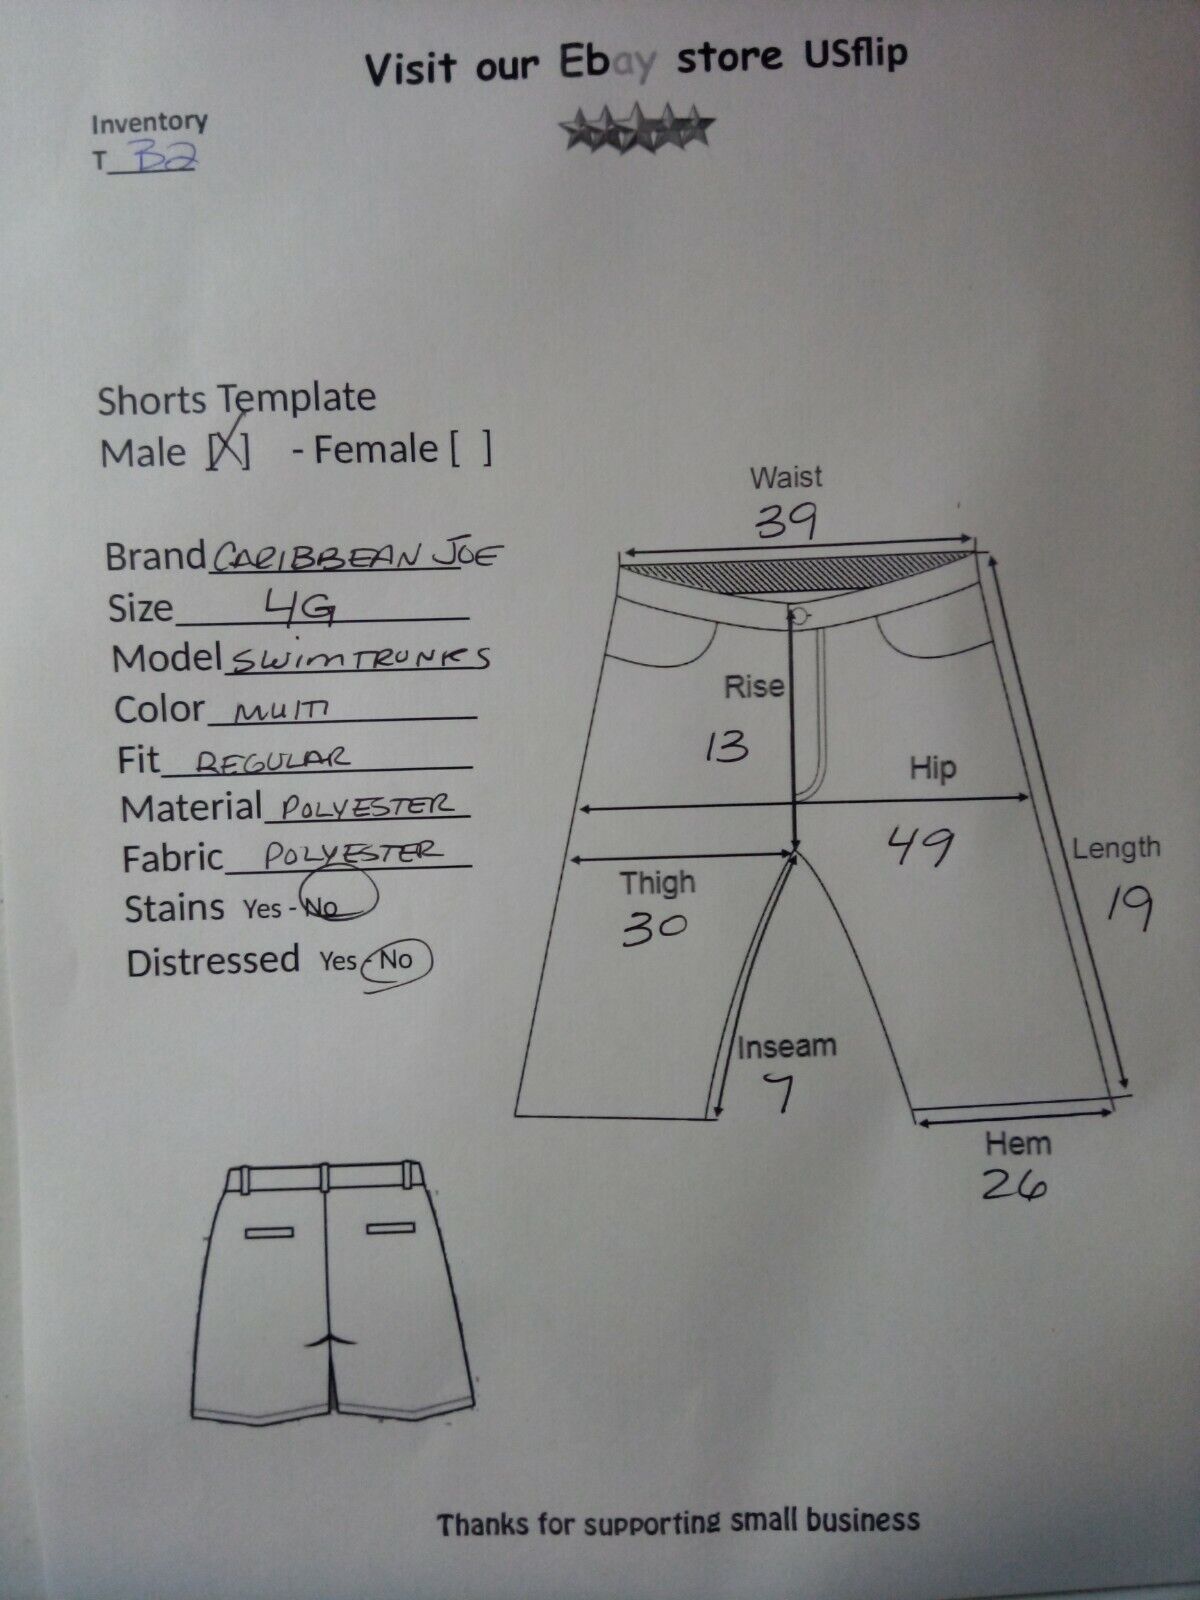 Visit our Ebay store USflip
Inventory
T B2
Shorts Template
Male [X] - Female [ ]
Brand CARIBBEAN JOE
Size 4G
Model SWIMTRUNKS
Color MULTI
Fit REGULAR
Material POLYESTER
Fabric POLYESTER
Stains Yes - No
Distressed Yes - No
Waist
39
Rise
13
Hip
49
Thigh
30
Length
19
Inseam
7
Hem
26
Thanks for supporting small business